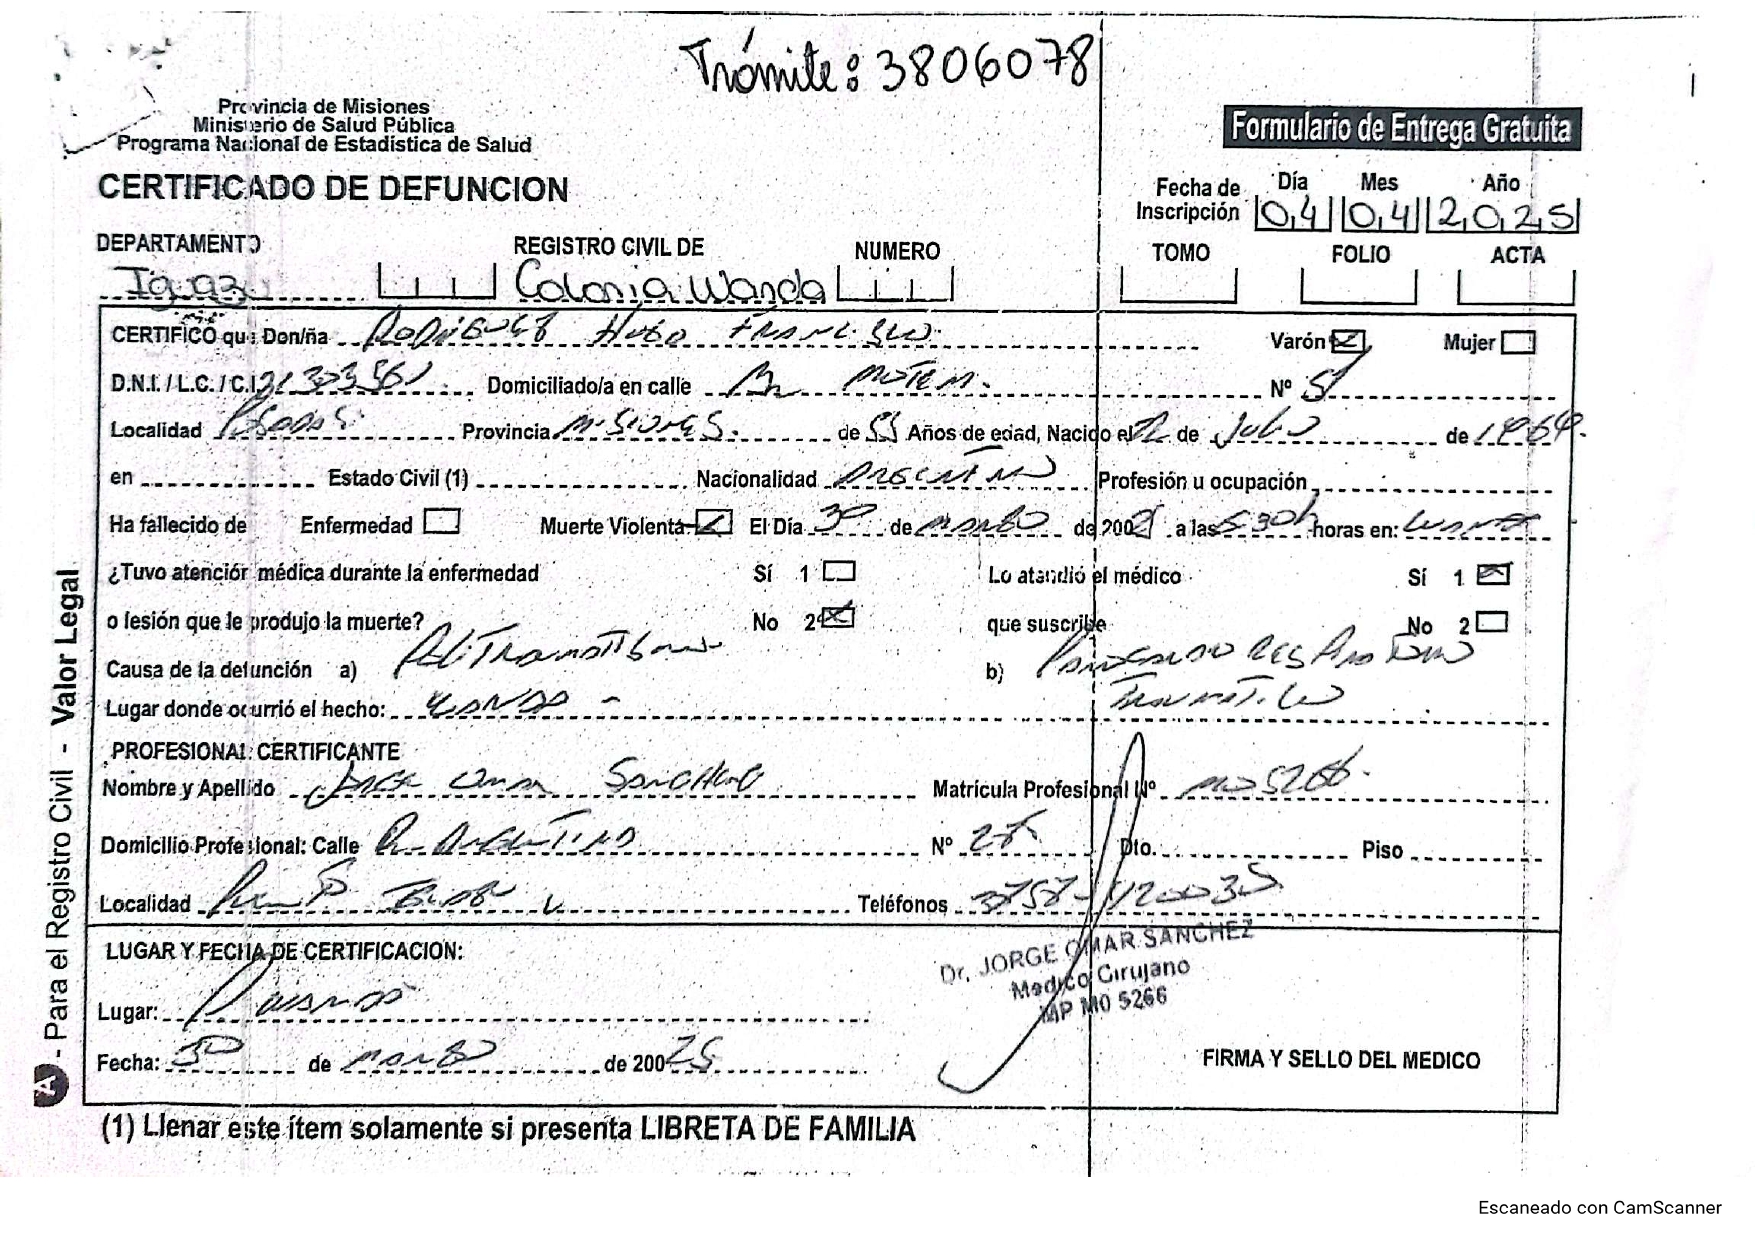 Trámite: 3806078
Provincia de Misiones
Ministerio de Salud Pública
Programa Nacional de Estadística de Salud
Formulario de Entrega Gratuita
CERTIFICADO DE DEFUNCION
Fecha de Inscripción Día Mes Año
04 04 2025
DEPARTAMENTO REGISTRO CIVIL DE NUMERO TOMO FOLIO ACTA
Iguazu Colonia Wanda
CERTIFICO que Don/ña Rodriguez Hugo Francisco Varón Mujer
D.N.I. / L.C. / C.I. Domiciliado/a en calle Nº
Localidad Posadas Provincia Misiones. de 55 Años de edad, Nacido el 22 de Julio de
en Estado Civil (1) Nacionalidad Argentino Profesión u ocupación
Ha fallecido de Enfermedad Muerte Violenta El Día 30 de marzo de 200 a las 530h horas en: Wanda
¿Tuvo atención médica durante la enfermedad Sí 1 Lo atendió el médico Sí 1
o lesión que le produjo la muerte? No 2 que suscribe No 2
Causa de la defunción a) Politraumatismo b) Paro Cardio Respiratorio
Traumatico
Lugar donde ocurrió el hecho: Wanda -
PROFESIONAL CERTIFICANTE
Nombre y Apellido Jorge Omar Sanchez Matrícula Profesional Nº M05266.
Domicilio Profesional: Calle Nº Dto. Piso
Localidad Teléfonos 3757-
LUGAR Y FECHA DE CERTIFICACION:
Dr. JORGE OMAR SANCHEZ
Medico Cirujano
MP M0 5266
Lugar: Wanda
Fecha: 30 de marzo de 20025
FIRMA Y SELLO DEL MEDICO
(1) Llenar este ítem solamente si presenta LIBRETA DE FAMILIA
A - Para el Registro Civil - Valor Legal
Escaneado con CamScanner